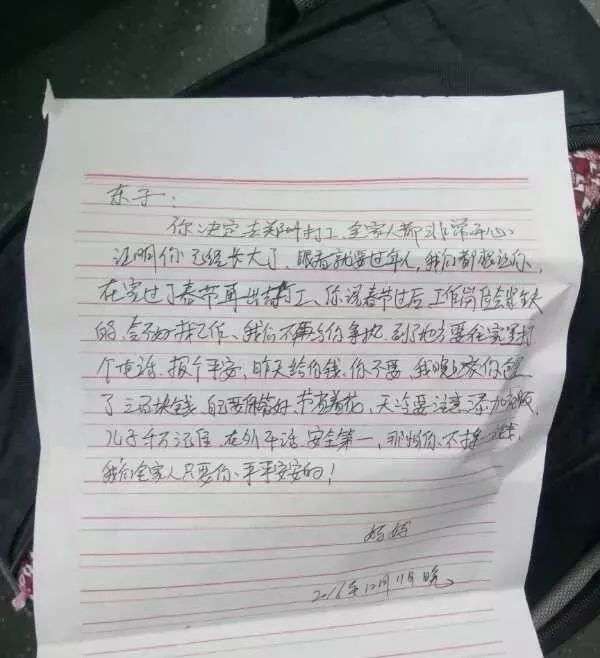 东子：
你决定去郑州打工,全家人都非常开心
证明你已经长大了,眼看就要过年人,我们都想让你,
在家过了春节再出去打工、你说春节过后工作岗位会紧缺
的,会不好找工作、我们不再与你争执.到了地方要往家里打
个电话.报个平安,昨天给你钱.你不要,我晚上家你包
了三百块钱,自己要保管好.节省着花,天冷要注意添加衣服,
儿子千万记住,在外干活,安全第一,那怕你不挣一分钱,
我们全家人只要你、平平安安的!
妈妈
2016年12月11月晚